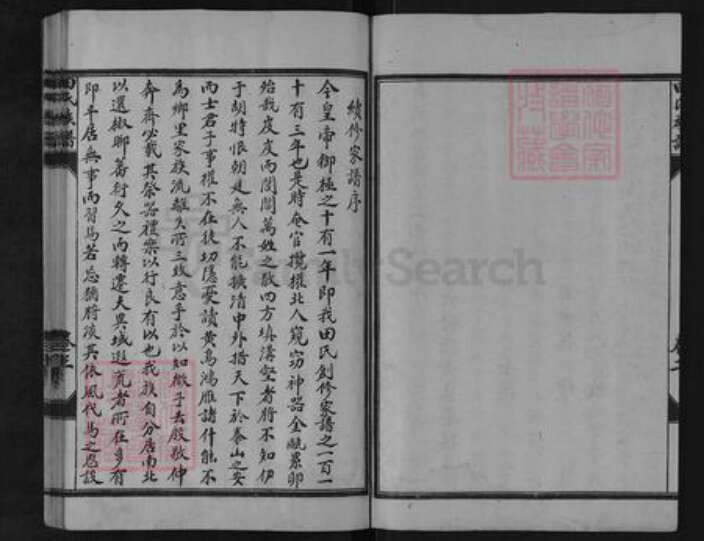 續修家譜序
今皇帝御極之十有一年即我田氏創修家譜之一百一
十有三年也是時奄官攬權北人窺窃神器金甌累卵
殆哉岌岌而閭閻萬姓之眾四方填溝壑者將不知伊
于胡特恨朝廷無人不能擴清中外措天下於泰山之安
而士君子事權不在徒切隱憂讀黃鳥鴻雁諸什能不
為鄉里家族流離久所三致意乎於以知微子去殷敬仲
奔齊必載其祭器禮樂以行良有以也我族自分居南北
以還椒聊蕃衍久之而轉遷夫異域遐荒者所在多有
即平居無事而習馬若忘猶將談其依風代馬之思設
田氏族譜
卷之
FamilySearch